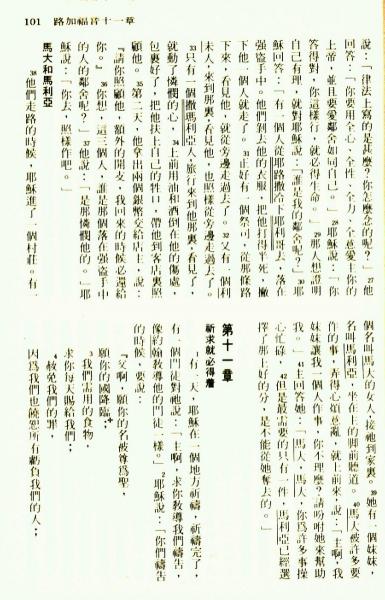 101　路加福音十一章
說：「律法上寫的是甚麼？你怎麼念的呢？」27他
回答：「你要用全心、全性、全力、全意愛主你的
上帝，並且要愛鄰舍如同自己。」28耶穌說：「你
答得對，你這樣行，就必得生命。」29那人想證明
自己有理，就對耶穌說：「誰是我的鄰舍呢？」30耶
穌回答：「有一個人從耶路撒冷下耶利哥去，落在
強盜手中。他們剝去他的衣服，把他打得半死，撇
下他，一個人就走了。31正好有一個祭司，從那條路
下來，看見他，就從旁邊走過去了。32又有一個利
未人，來到那裏，看見他，也照樣從旁邊走過去了。
33只有一個撒瑪利亞人，旅行來到他那裏，看見了，
就動了憐憫的心，34上前用油和酒倒在他的傷處，
包裹好了，把他扶上自己的牲口，帶他到客店裏照
顧他。35第二天，他拿出兩個銀幣交給店主，說：
『請你照顧他，額外的開支，我回來的時候必還給
你。』36你想，這三個人，誰是那個落在強盜手中
的人的鄰舍呢？」37他說：「是那憐憫他的。」耶
穌說：「你去，照樣作吧。」
馬大和馬利亞
38他們走路的時候，耶穌進了一個村莊。有一
個名叫馬大的女人，接祂到家裏。39她有一個妹妹，
名叫馬利亞，坐在主的腳前聽道。40馬大被許多要
作的事，弄得心煩意亂，就上前來，說：「主啊，我
妹妹讓我一個人作事，你不理麼？請吩咐她來幫助
我。」41主回答她：「馬大，馬大，你為許多事操
心忙碌，42但是最需要的只有一件，馬利亞已經選
擇了那上好的分，是不能從她奪去的。」
第十一章
祈求就必得着
1有一天，耶穌在一個地方祈禱，祈禱完了，
有一個門徒對祂說：「主啊，求你教導我們禱告，
像約翰教導他的門徒一樣。」2耶穌說：「你們禱告
的時候，要說：
『父啊，願你的名被尊為聖，
願你的國降臨；
3我們需用的食物，
求你每天賜給我們；
4赦免我們的罪，
因為我們也饒恕所有虧負我們的人；